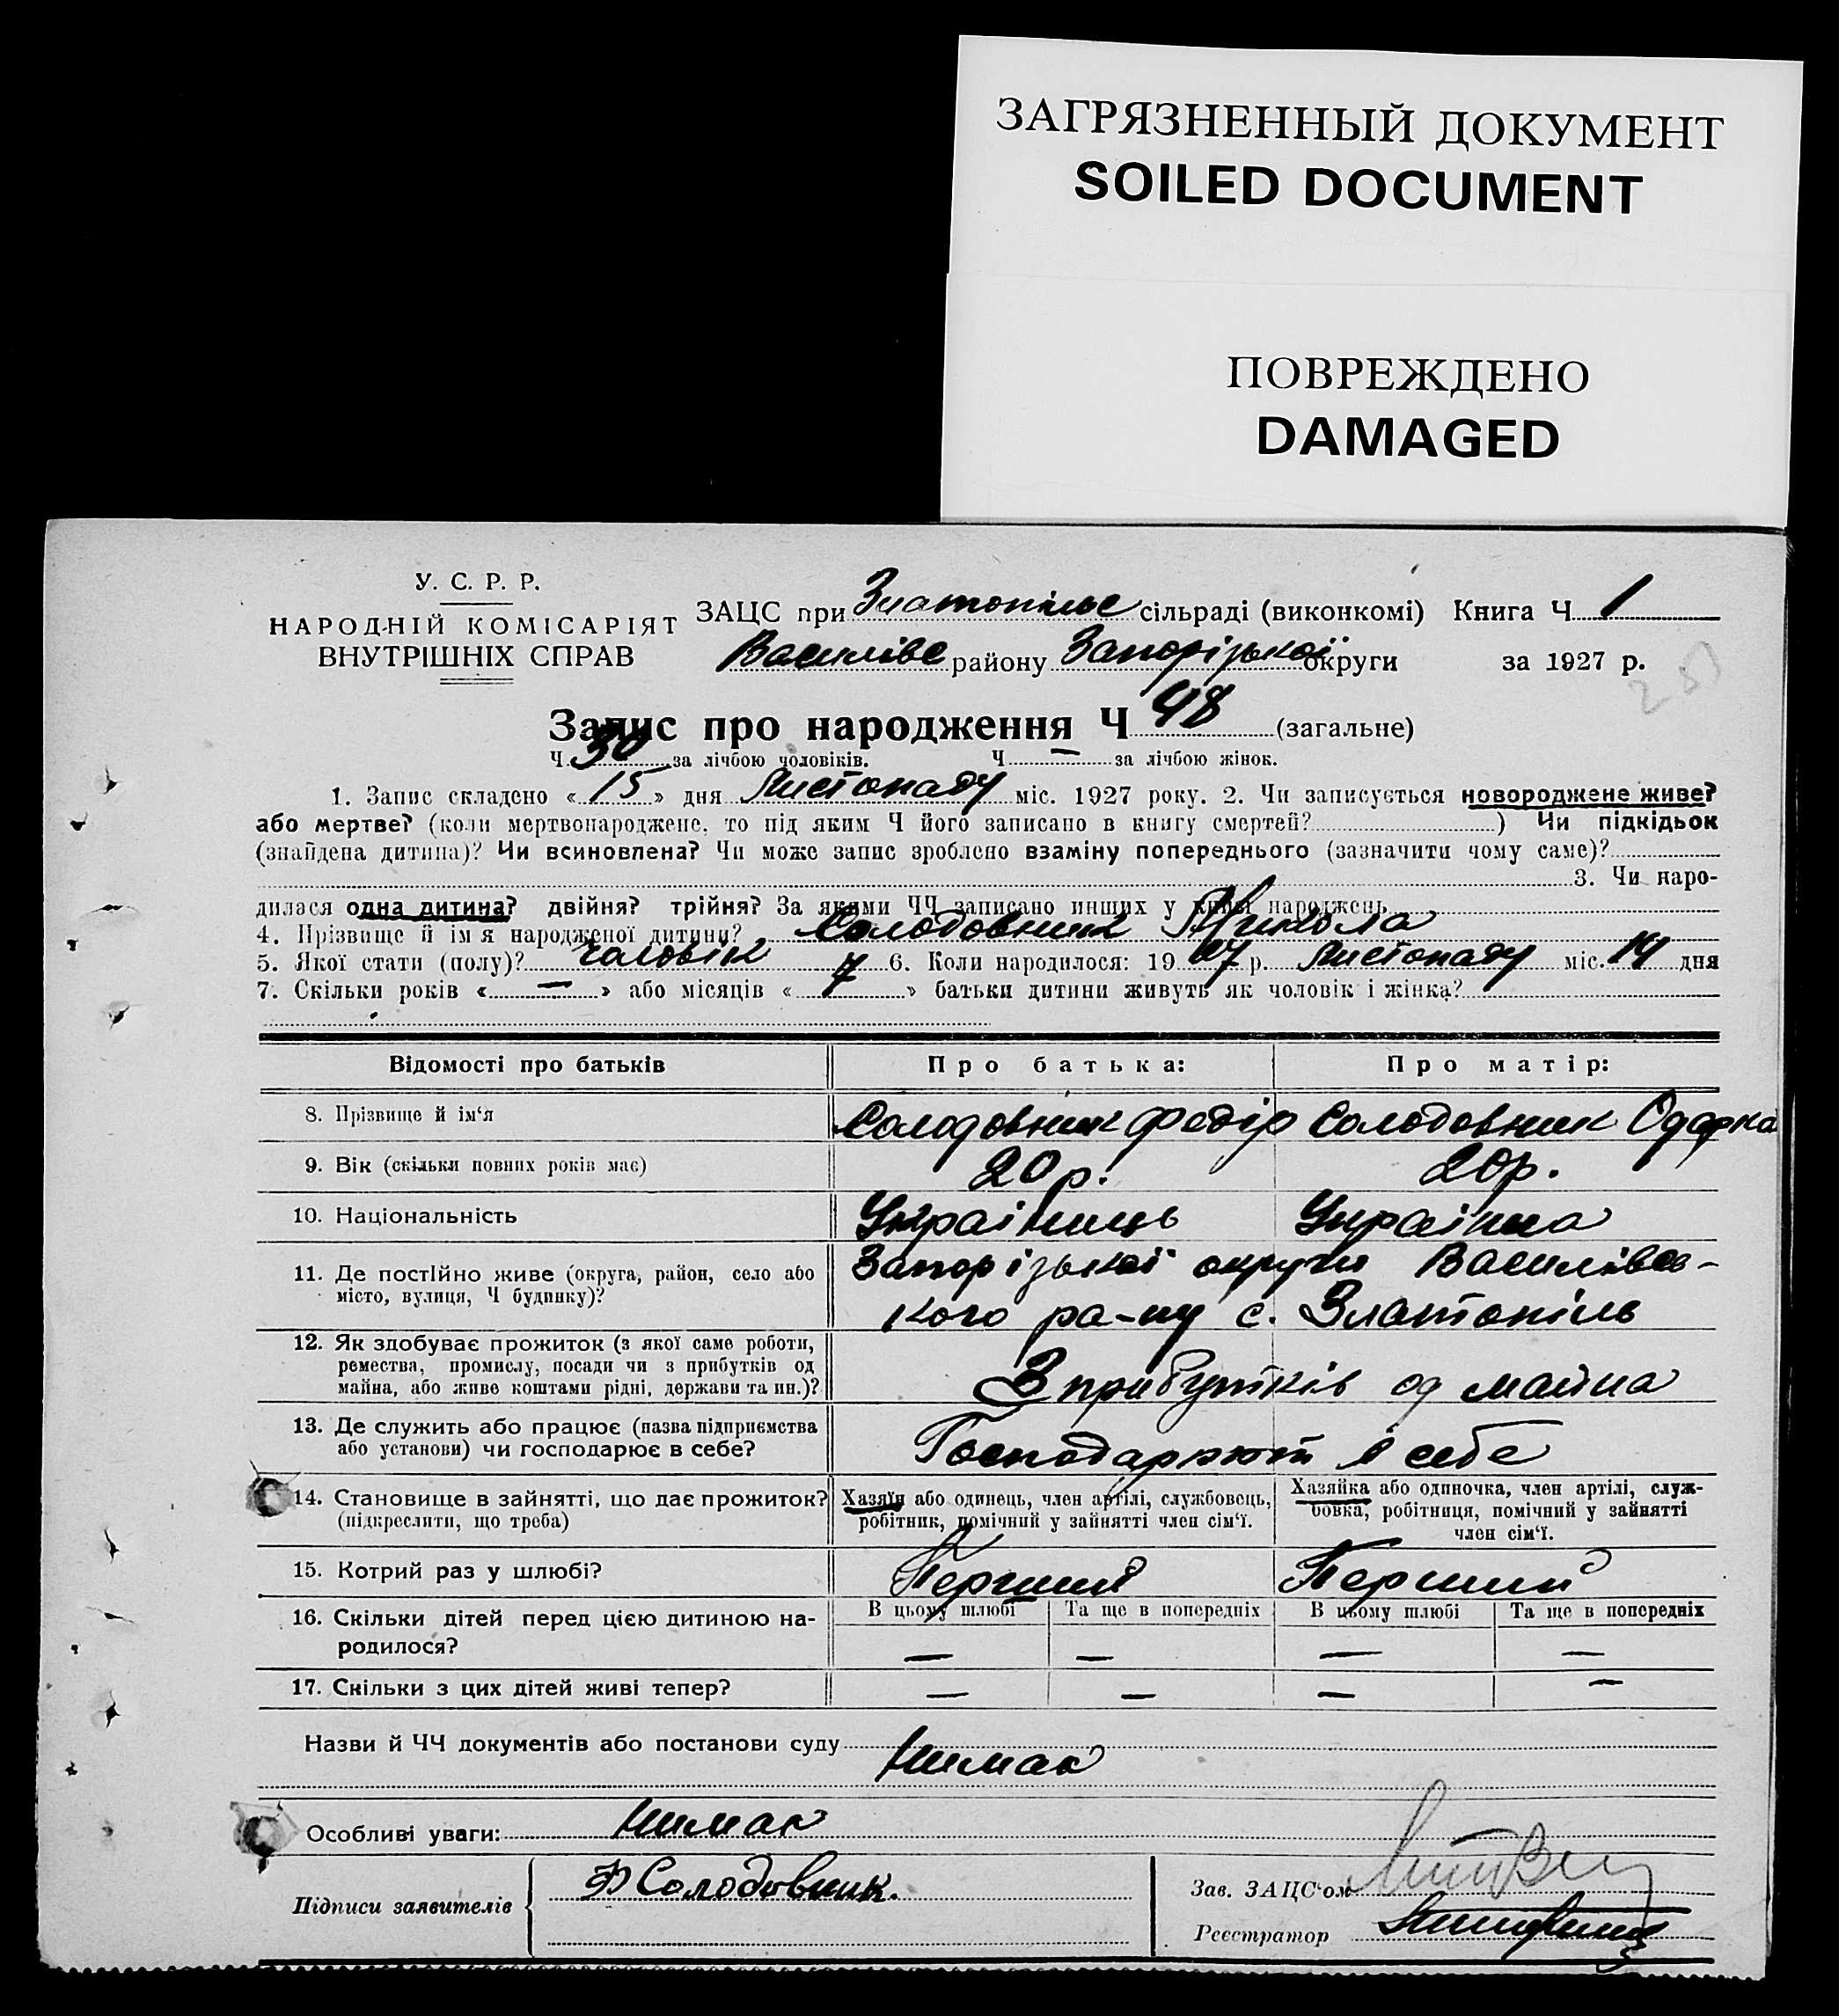 ЗАГРЯЗНЕННЫЙ ДОКУМЕНТ
SOILED DOCUMENT
ПОВРЕЖДЕНО
DAMAGED
У. С. Р. Р.
НАРОДНІЙ КОМІСАРІЯТ
ВНУТРІШНІХ СПРАВ
ЗАЦС при Златопільс сільраді (виконкомі) Книга Ч 1
Василівс району Запорізької округи за 1927 р.
Запис про народження Ч 48 (загальне)
Ч 30 за лічбою чоловіків. Ч — за лічбою жінок.
1. Запис складено « 15 » дня Листопаду міс. 1927 року. 2. Чи записується новороджене живе?
або мертве? (коли мертвонароджене, то під яким Ч його записано в книгу смертей? ) Чи підкідьок
(знайдена дитина)? Чи всиновлена? Чи може запис зроблено взаміну попереднього (зазначити чому саме)?
3. Чи наро-
дилася одна дитина? двійня? трійня? За якими ЧЧ записано инших у книзі народжень
4. Прізвище й ім'я народженої дитини? Солодовник Микола
5. Якої стати (полу)? чаловік 6. Коли народилося: 19 27 р. Листопаду міс. 14 дня
7. Скільки років « — » або місяців « 7 » батьки дитини живуть як чоловік і жінка?
Відомості про батьків Про батька: Про матір:
8. Прізвище й ім'я Солодовник Федір Солодовник Одарка
9. Вік (скільки повних років має) 20 р. 20 р.
10. Національність Украіниць Украінка
11. Де постійно живе (округа, район, село або Запорізької округи Василівсь-
місто, вулиця, Ч будинку)? кого ра-ну с. Златопіль
12. Як здобуває прожиток (з якої саме роботи,
ремества, промислу, посади чи з прибутків од
майна, або живе коштами рідні, держави та ин.)? З прибутків од майна
13. Де служить або працює (назва підприємства
або установи) чи господарює в себе? Господарюют в себе
14. Становище в зайнятті, що дає прожиток? Хазяїн або одинець, член артілі, службовець, Хазяйка або одиночка, член артілі, служ-
(підкреслити, що треба) робітник, помічний у зайнятті член сім'ї. бовка, робітниця, помічний у зайнятті
член сім'ї.
15. Котрий раз у шлюбі? Перший Перший
16. Скільки дітей перед цією дитиною на- В цьому шлюбі Та ще в попередніх В цьому шлюбі Та ще в попередніх
родилося? — — — —
17. Скільки з цих дітей живі тепер? — — — —
Назви й ЧЧ документів або постанови суду
Нимає
Особливі уваги: Нимає
Підписи заявителів Ф Солодовник.
Зав. ЗАЦС'ом
Реєстратор